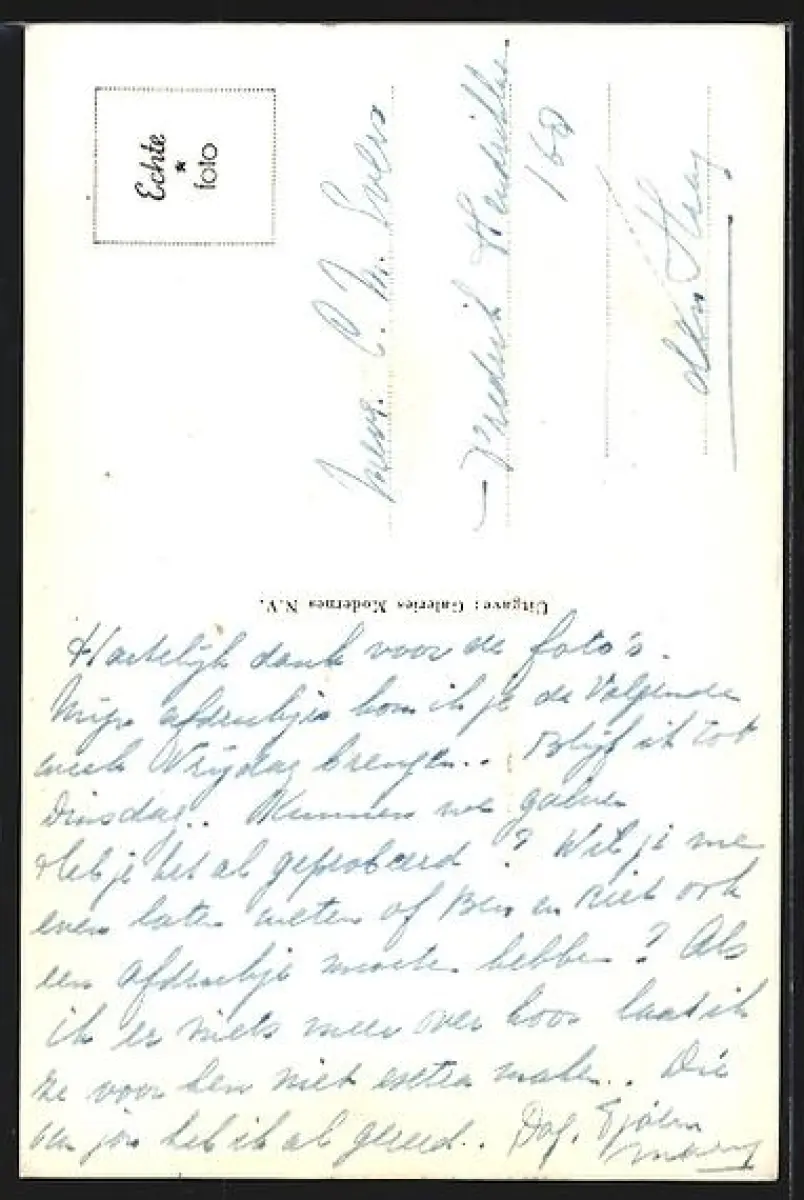 Echte
*
foto
Mevr. C. M.
Frederik Hendriklaan
160
den Haag
Uitgave: Galeries Modernes N.V.
Hartelijk dank voor de foto's.
Mijn afdrukjes kom ik je de Volgende
week Vrijdag brengen.. Blijf ik tot
Dinsdag.. Kunnen we
Heb je het al geprobeerd? Wil je me
even laten weten of Ben en Riet ook
een afdrukje moeten hebben? Als
ik er niets meer over hoor laat ik
ze voor hen niet extra maken.. Die
van jou heb ik al gereed.. Dag.